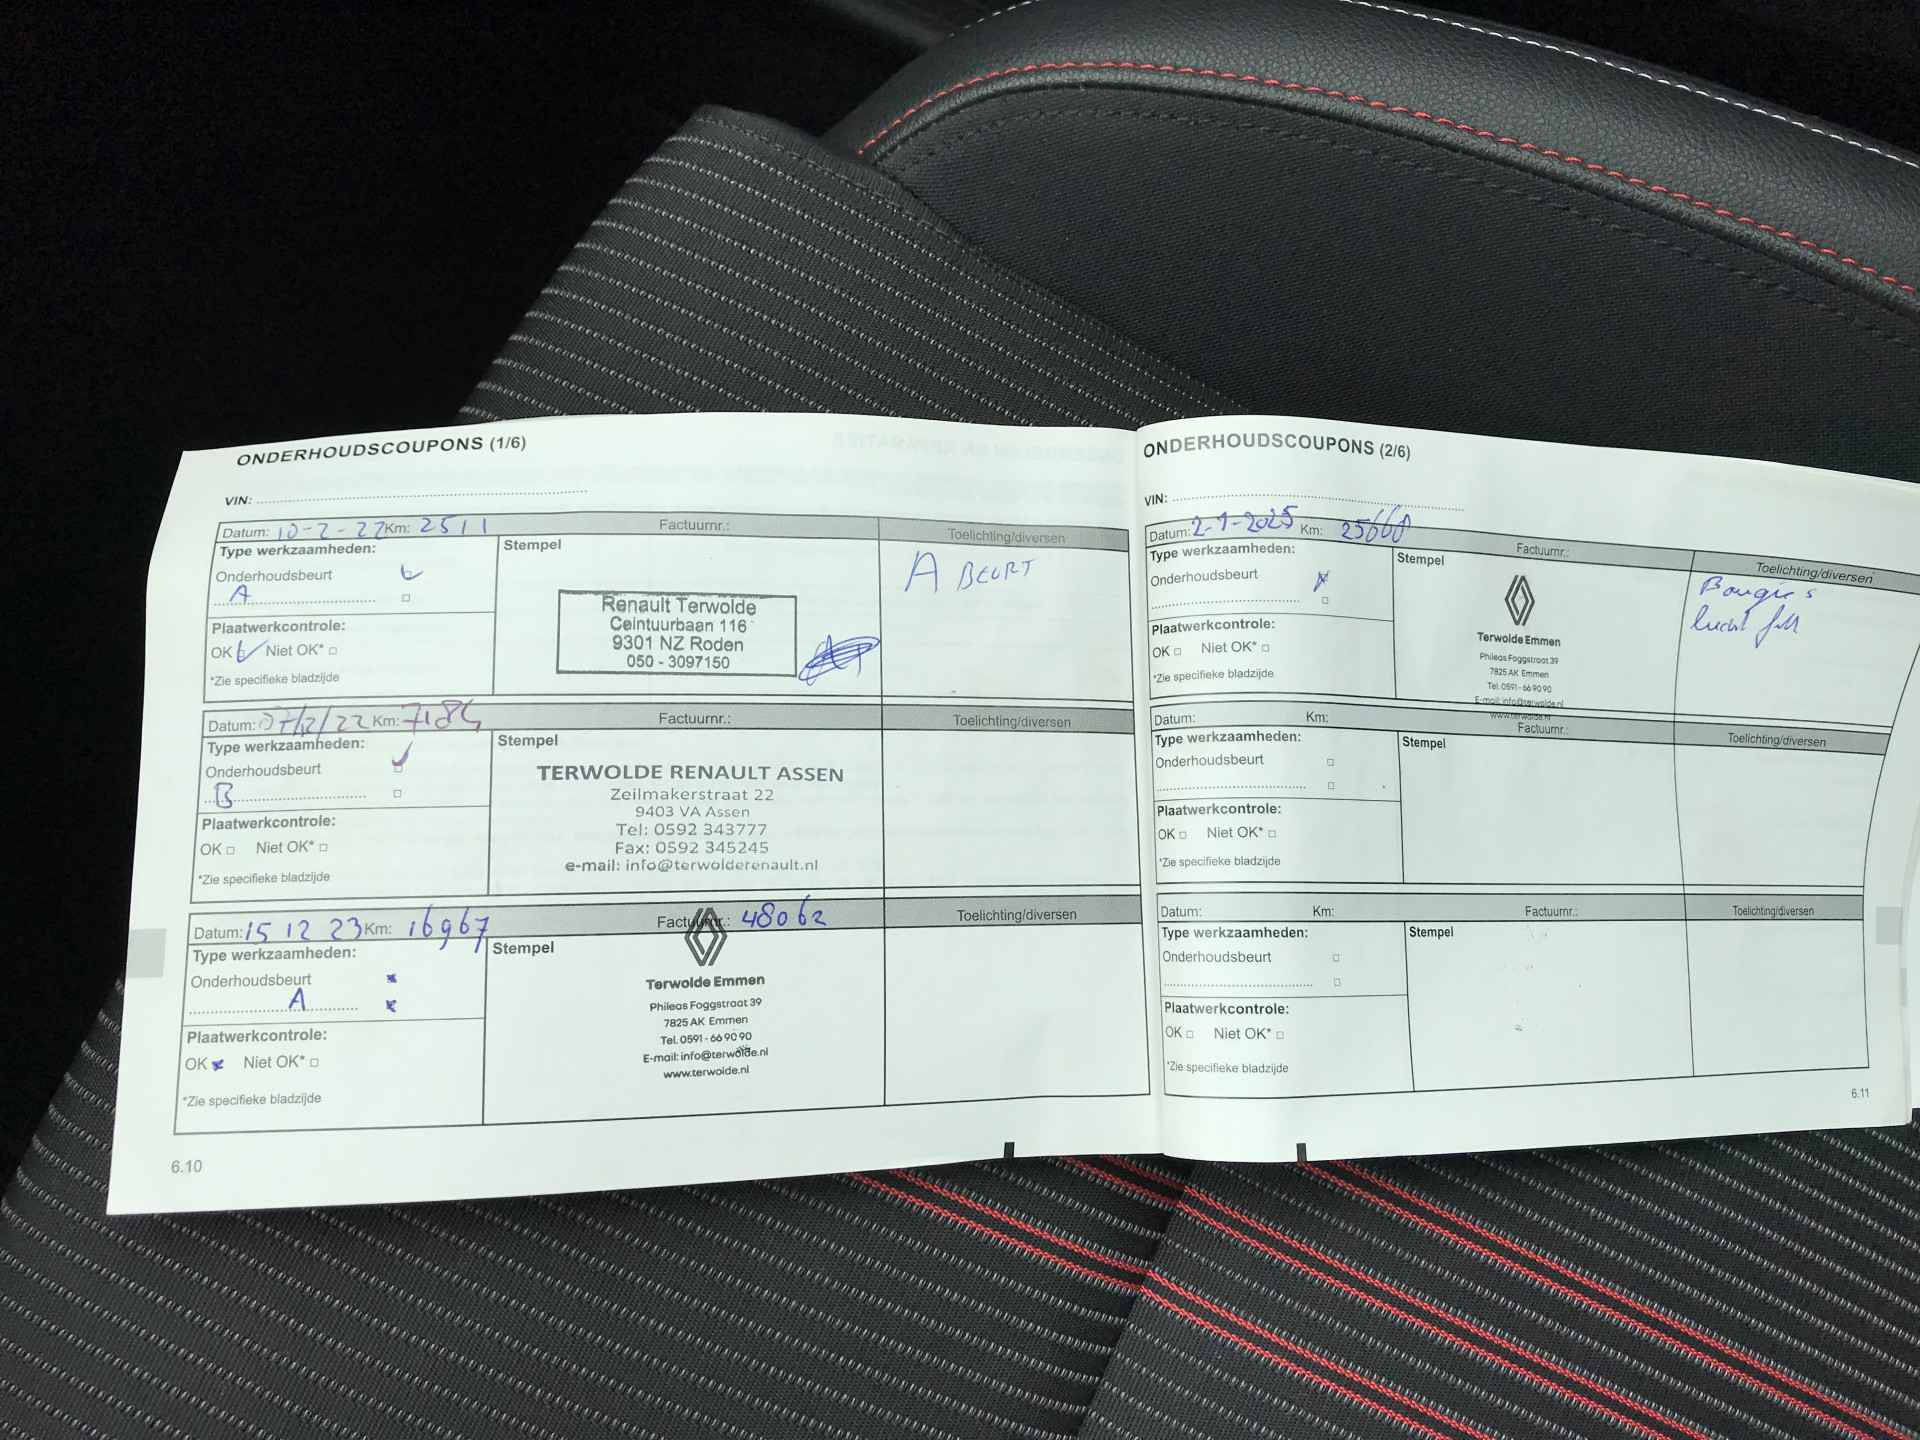 ONDERHOUDSCOUPONS (1/6)
VIN:
Datum: 10-2-22 Km: 2511 Factuurnr.: Toelichting/diversen
Type werkzaamheden:
Onderhoudsbeurt
A
Plaatwerkcontrole:
OK Niet OK*
*Zie specifieke bladzijde
Stempel
Renault Terwolde
Ceintuurbaan 116
9301 NZ Roden
050 - 3097150
A BEURT
Datum: 07/12/22 Km: 7184 Factuurnr.: Toelichting/diversen
Type werkzaamheden:
Onderhoudsbeurt
B
Plaatwerkcontrole:
OK Niet OK*
*Zie specifieke bladzijde
Stempel
TERWOLDE RENAULT ASSEN
Zeilmakerstraat 22
9403 VA Assen
Tel: 0592 343777
Fax: 0592 345245
e-mail: info@terwolderenault.nl
Datum: 15 12 23 Km: 16967 Factuurnr.: 48062 Toelichting/diversen
Type werkzaamheden:
Onderhoudsbeurt
A
Plaatwerkcontrole:
OK Niet OK*
*Zie specifieke bladzijde
Stempel
Terwolde Emmen
Phileas Foggstraat 39
7825 AK Emmen
Tel. 0591 - 66 90 90
E-mail: info@terwolde.nl
www.terwolde.nl
6.10
ONDERHOUDSCOUPONS (2/6)
VIN:
Datum: 2-1-2025 Km: 25660 Factuurnr.: Toelichting/diversen
Type werkzaamheden:
Onderhoudsbeurt
Plaatwerkcontrole:
OK Niet OK*
*Zie specifieke bladzijde
Stempel
Terwolde Emmen
Phileas Foggstraat 39
7825 AK Emmen
Tel. 0591 - 66 90 90
E-mail: info@terwolde.nl
www.terwolde.nl
Bougies
lucht
Datum: Km: Factuurnr.: Toelichting/diversen
Type werkzaamheden:
Onderhoudsbeurt
Plaatwerkcontrole:
OK Niet OK*
*Zie specifieke bladzijde
Stempel
Datum: Km: Factuurnr.: Toelichting/diversen
Type werkzaamheden:
Onderhoudsbeurt
Plaatwerkcontrole:
OK Niet OK*
*Zie specifieke bladzijde
Stempel
6.11